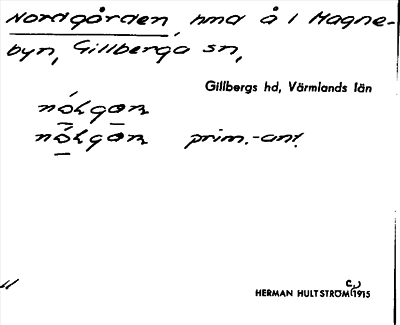 Nordgården, hmd å 1 Magne-
byn, Gillberga sn,
Gillbergs hd, Värmlands län
prim.-ant.
HERMAN HULTSTRÖM C, 1915